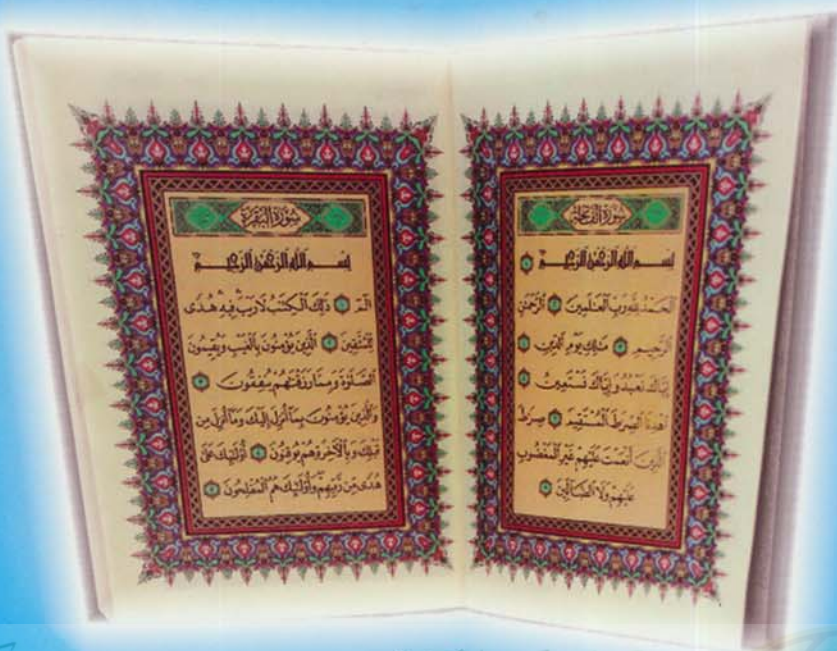 سورة الفاتحة
بسم الله الرحمن الرحيم ١
الحمد لله رب العلمين ٢ الرحمن
الرحيم ٣ ملك يوم الدين ٤
إياك نعبد وإياك نستعين ٥
اهدنا الصرط المستقيم ٦ صرط
الذين أنعمت عليهم غير المغضوب
عليهم ولا الضالين ٧
سورة البقرة
بسم الله الرحمن الرحيم
الم ١ ذلك الكتب لا ريب فيه هدى
للمتقين ٢ الذين يؤمنون بالغيب ويقيمون
الصلوة ومما رزقنهم ينفقون ٣
والذين يؤمنون بما أنزل إليك وما أنزل من
قبلك وبالآخرة هم يوقنون ٤ أولئك على
هدى من ربهم وأولئك هم المفلحون ٥